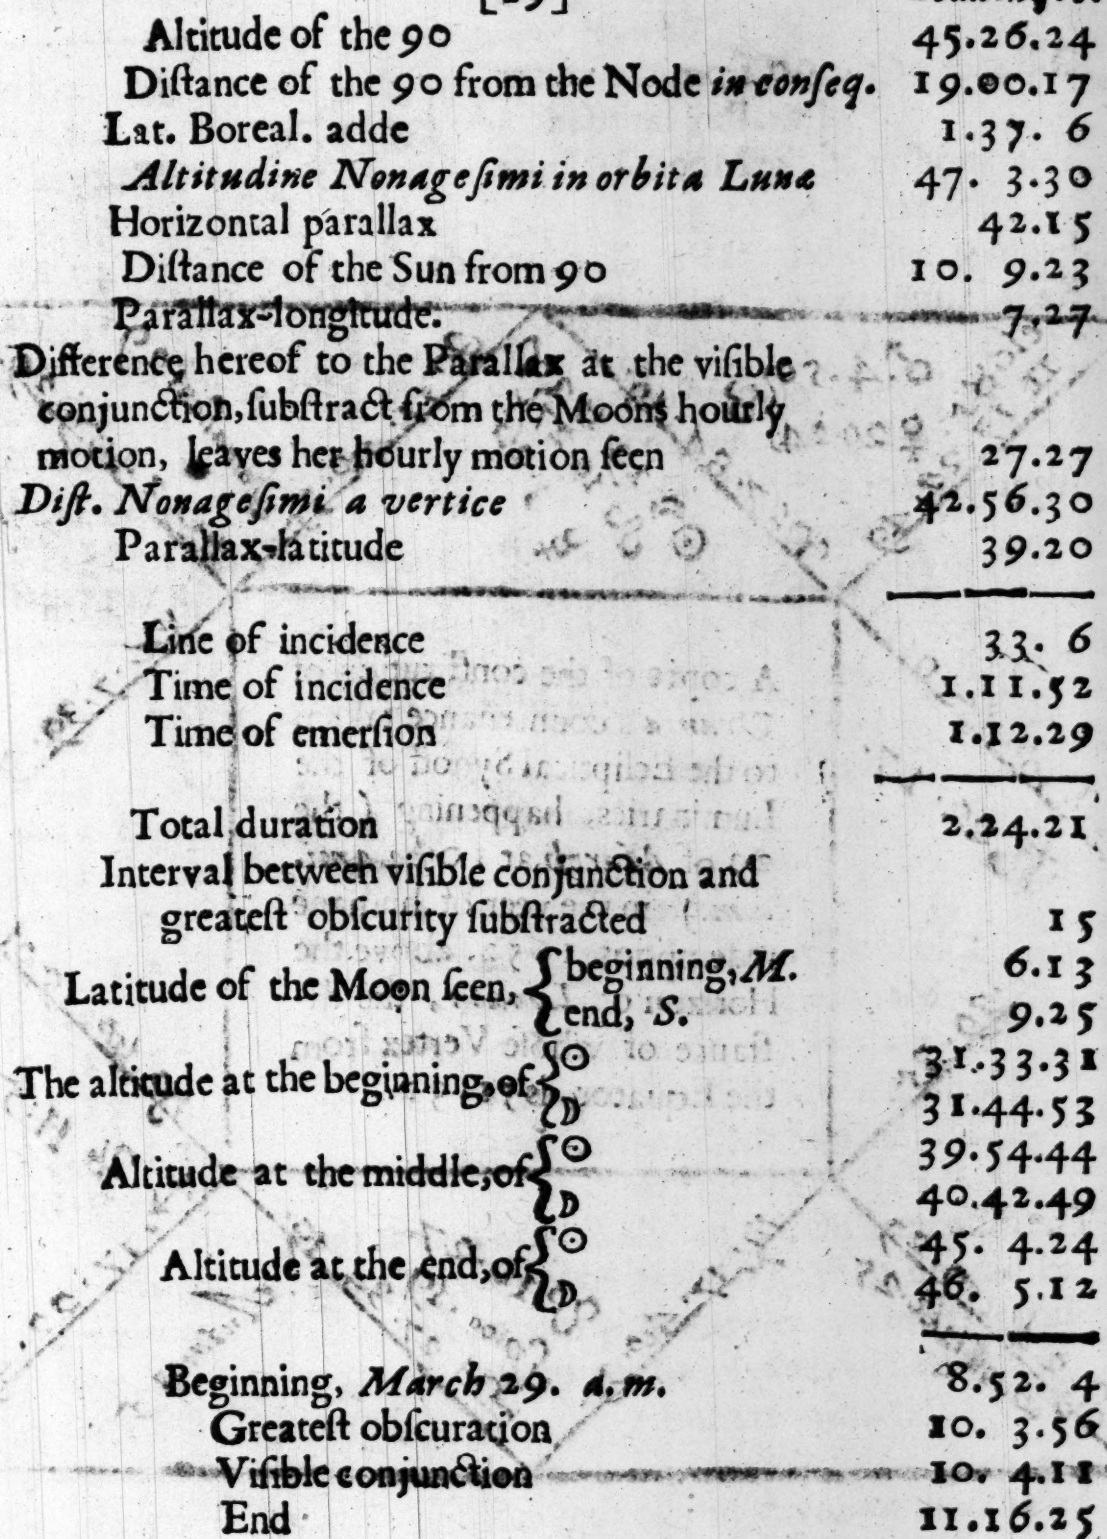 [29]
Altitude of the 90 45.26.24
Diſtance of the 90 from the Node in conſeq. 19.00.17
Lat. Boreal. adde 1.37. 6
Altitudine Nonageſimi in orbita Lunæ 47. 3.30
Horizontal parallax 42.15
Diſtance of the Sun from 90 10. 9.23
Parallax-longitude. 7.27
Difference hereof to the Parallax at the viſible
conjunction, ſubſtract from the Moons hourly
motion, leaves her hourly motion ſeen 27.27
Diſt. Nonageſimi a vertice 42.56.30
Parallax-latitude 39.20
Line of incidence 33. 6
Time of incidence 1.11.52
Time of emerſion 1.12.29
Total duration 2.24.21
Interval between viſible conjunction and
greateſt obſcurity ſubſtracted 15
Latitude of the Moon ſeen, { beginning, M. 6.13
end, S. 9.25
The altitude at the beginning, of { ☉ 31.33.31
☽ 31.44.53
Altitude at the middle, of { ☉ 39.54.44
☽ 40.42.49
Altitude at the end, of { ☉ 45. 4.24
☽ 46. 5.12
Beginning, March 29. a.m. 8.52. 4
Greateſt obſcuration 10. 3.56
Viſible conjunction 10. 4.11
End 11.16.25